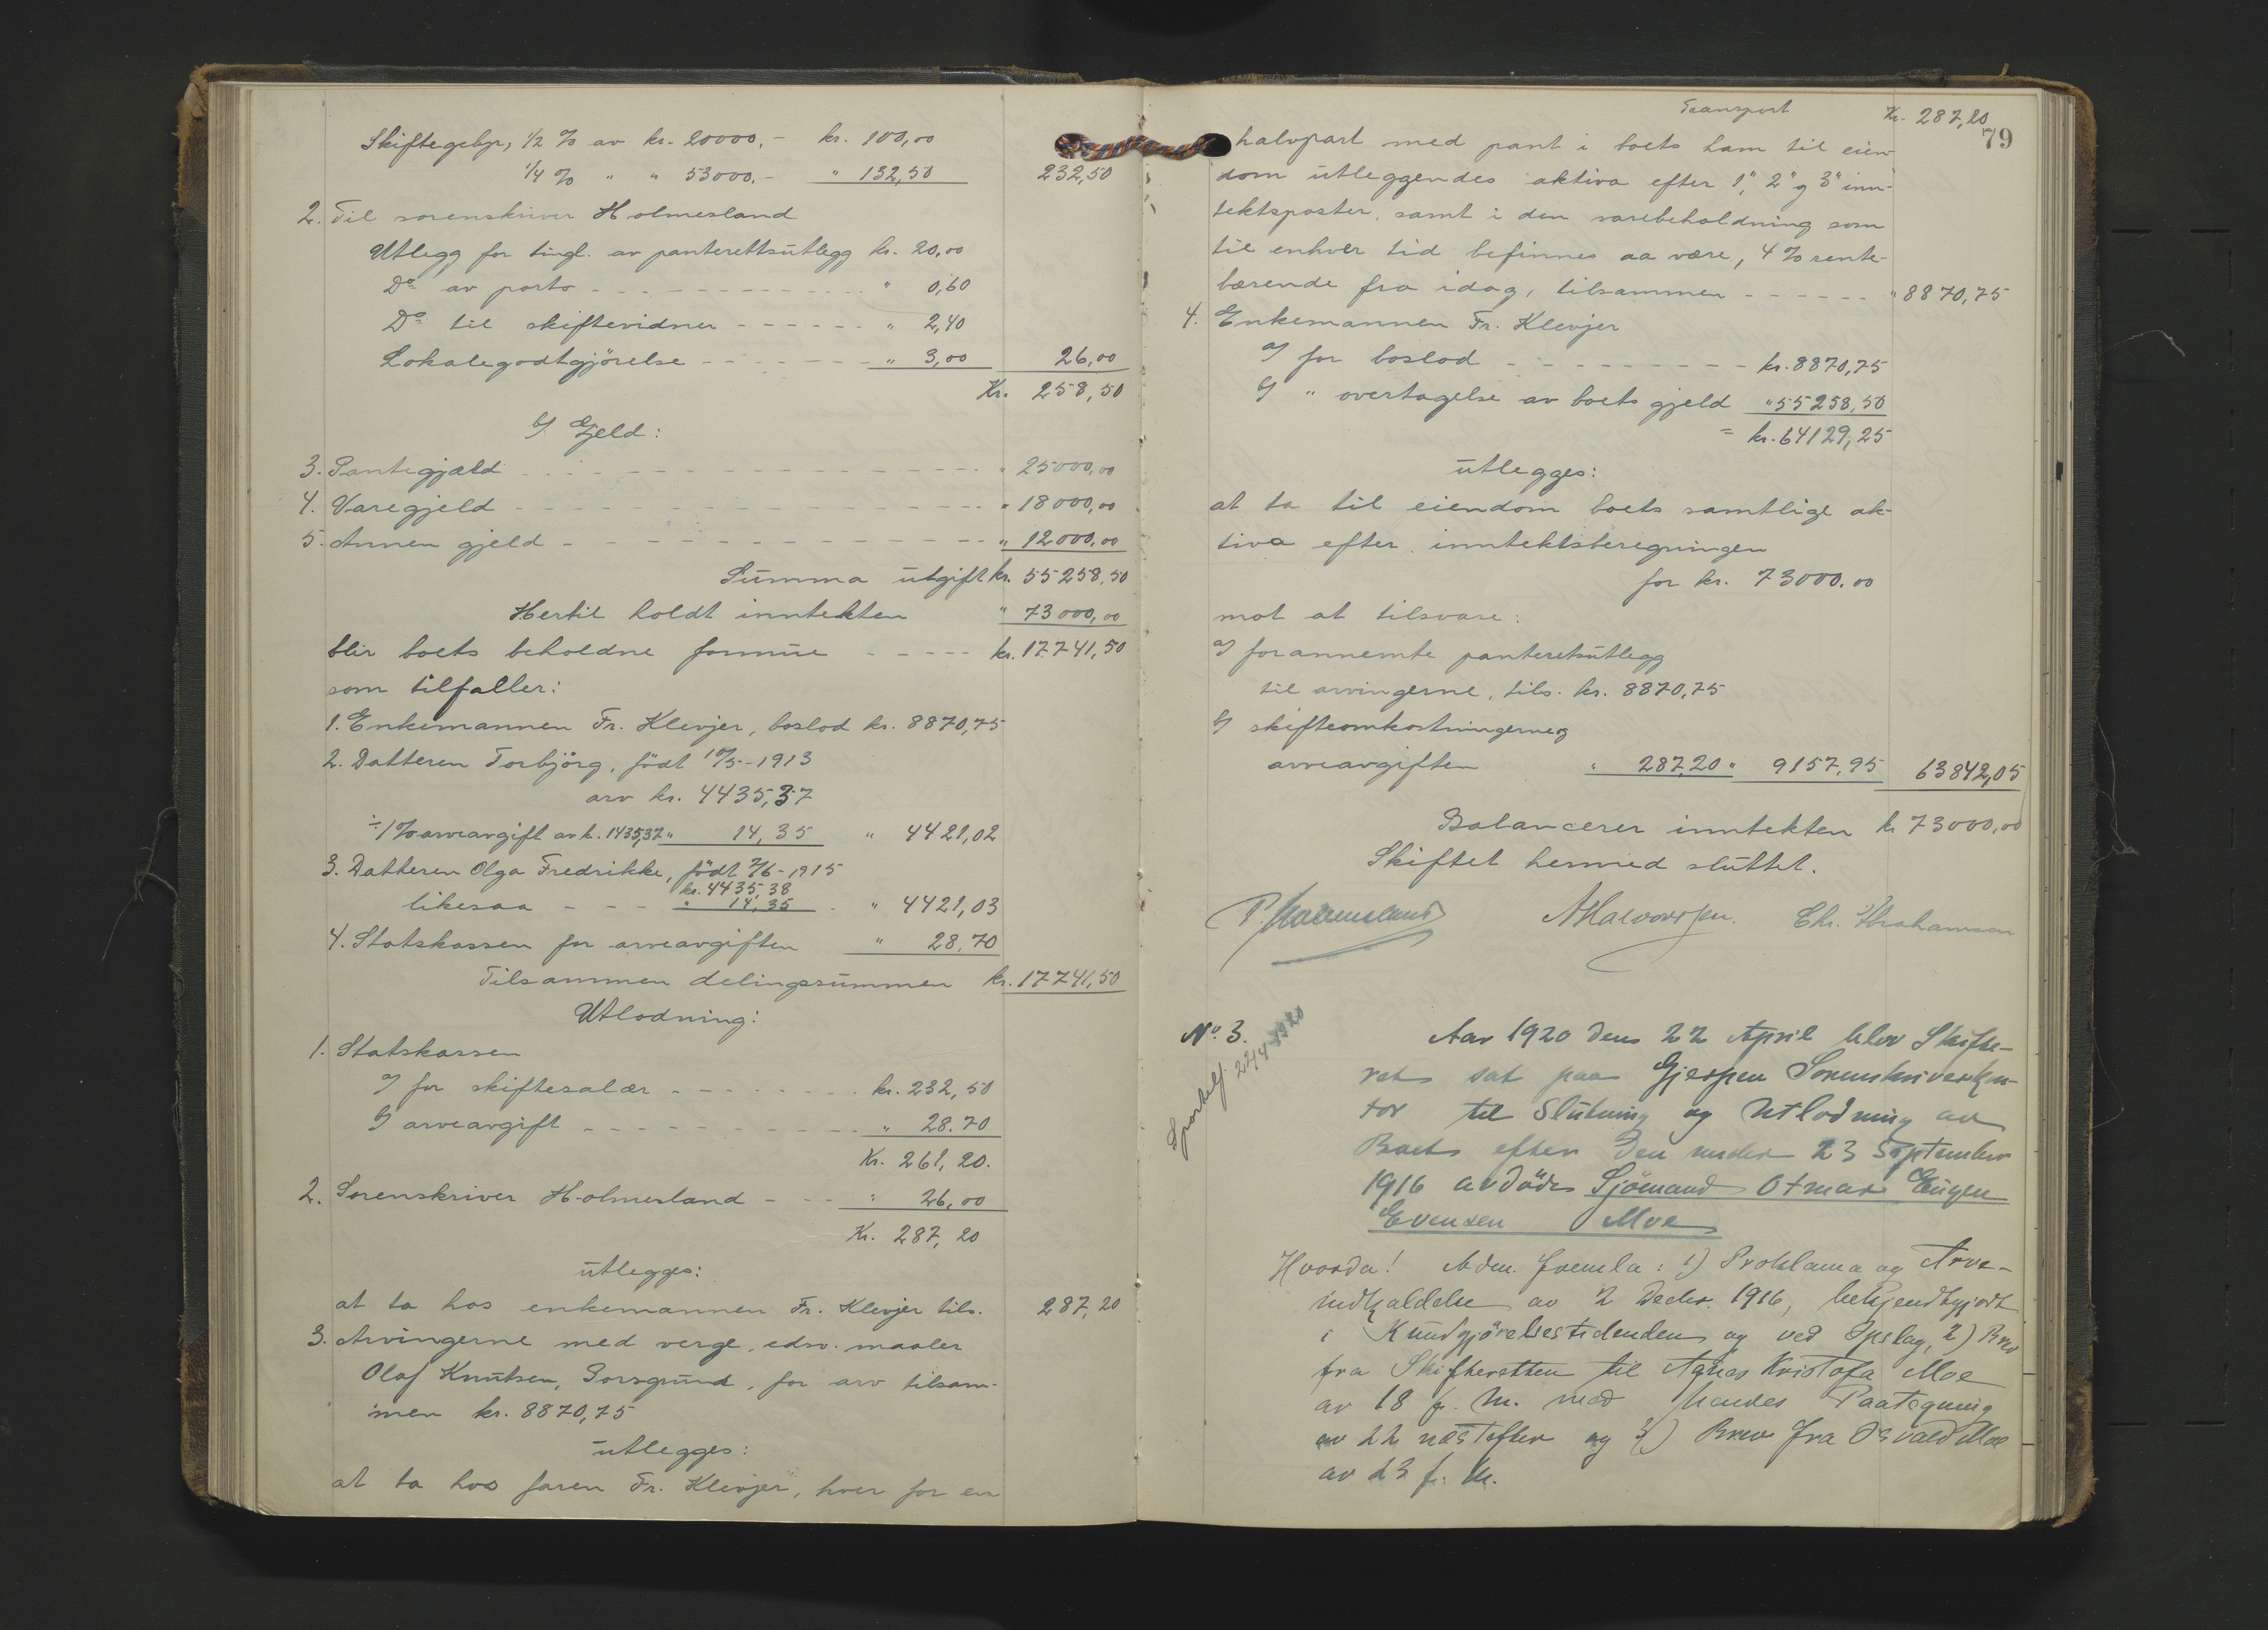 Skiftegebyr, 1/2 % av kr. 20000,- kr. 100,00
1/4 % " " 53000.- " 132,50 232,50
2. Til sorenskriver Holmesland
Utlegg for tingl. av panterettsutlegg kr. 20,00
Do av porto - - - " 0,60
Do til skiftevidner - - - " 2,40
Lokalegodtgjörelse - - - " 3,00 26,00
Kr. 258,50
b/ Gjeld:
3. Pantegjæld - - - " 25000,00
4. Varegjeld - - - " 18000,00
5. Annen gjeld - - - " 12000,00
Summa utgift kr. 55258,50
Hertil holdt inntekten " 73000,00
blir boets beholdne formue - - - kr. 17741,50
som tilfaller:
1. Enkemannen Fr. Klevjer, boslod kr. 8870,75
2. Datteren Torbjörg, födt 10/5-1913
arv kr. 4435,37
÷ 1% arveavgift av k. 1435,37 " 14,35 " 4421,02
3. Datteren Olga Fredrikke, födt 7/6-1915
kr. 4435,38
likesaa - - - " 14,35 - " 4421,03
4. Statskassen for arveavgiften " 28,70
Tilsammen delingssummen kr. 17741,50
Utlodning:
1. Statskassen
a/ for skiftesalær - - - kr. 232,50
b/ arveavgift - - - " 28.70
Kr. 261,20.
2. Sorenskriver Holmesland - - - " 26,00
Kr. 287,20
utlegges:
at ta hos enkemannen Fr. Klevjer tils. 287,20
3. Arvingerne med verge, edsv. maaler
Olaf Knutsen, Porsgrund, for arv tilsam-
men kr. 8870,75
utlegges:
at ta hos faren Fr. Klevjer, hver for en
Transport Kr. 287,20
79
halvpart med pant i boets ham til eien-
dom utleggendes aktiva efter 1", 2" og 3" inn-
tektsposter, samt i den varebeholdning som
til enhver tid befinnes aa være, 4 % rente-
bærende fra idag, tilsammen - - - " 8870,75
4. Enkemannen Fr. Klevjer
a/ for boslod - - - kr. 8870,75
b/ " overtagelse av boets gjeld " 55258,50
= kr. 64129,25
utlegges:
at ta til eiendom boets samtlige ak-
tiva efter inntektsberegningen
for kr. 73000.00
mot at tilsvare:
a/ forannemte panteretsutlegg
til arvingerne, tils. kr. 8870,75
b/ skifteomkostningerne og
arveavgiften " 287,20 " 9157,95 63842,05
Balancerer inntekten kr 73000,00
Skiftet hermed sluttet.
P. Holmesland AHalvorsen. Chr. Abrahamsen
No. 3.
22/4 1920
Aar 1920 den 22 April blev Skifte-
ret sat paa Gjerpen Sorenskriverkon-
tor til Slutning og Utlodning av
Boet efter den under 23 September
1916 avdöde Sjömand Otmar Eugen
Evensen Moe
Hvorda! Adm. fremla: 1) Proklama og Arve-
indkaldelse av 2 Decbr. 1916, bekjendtgjort
i Kundgjörelsestidenden og ved Opslag, 2) Brev
fra Skifteretten til Agnes Kristofa Moe
av 18 f. M. med hendes Paategning
av 22 næstefter og 3) Brev fra Osvald Moe
av 23 f. M.